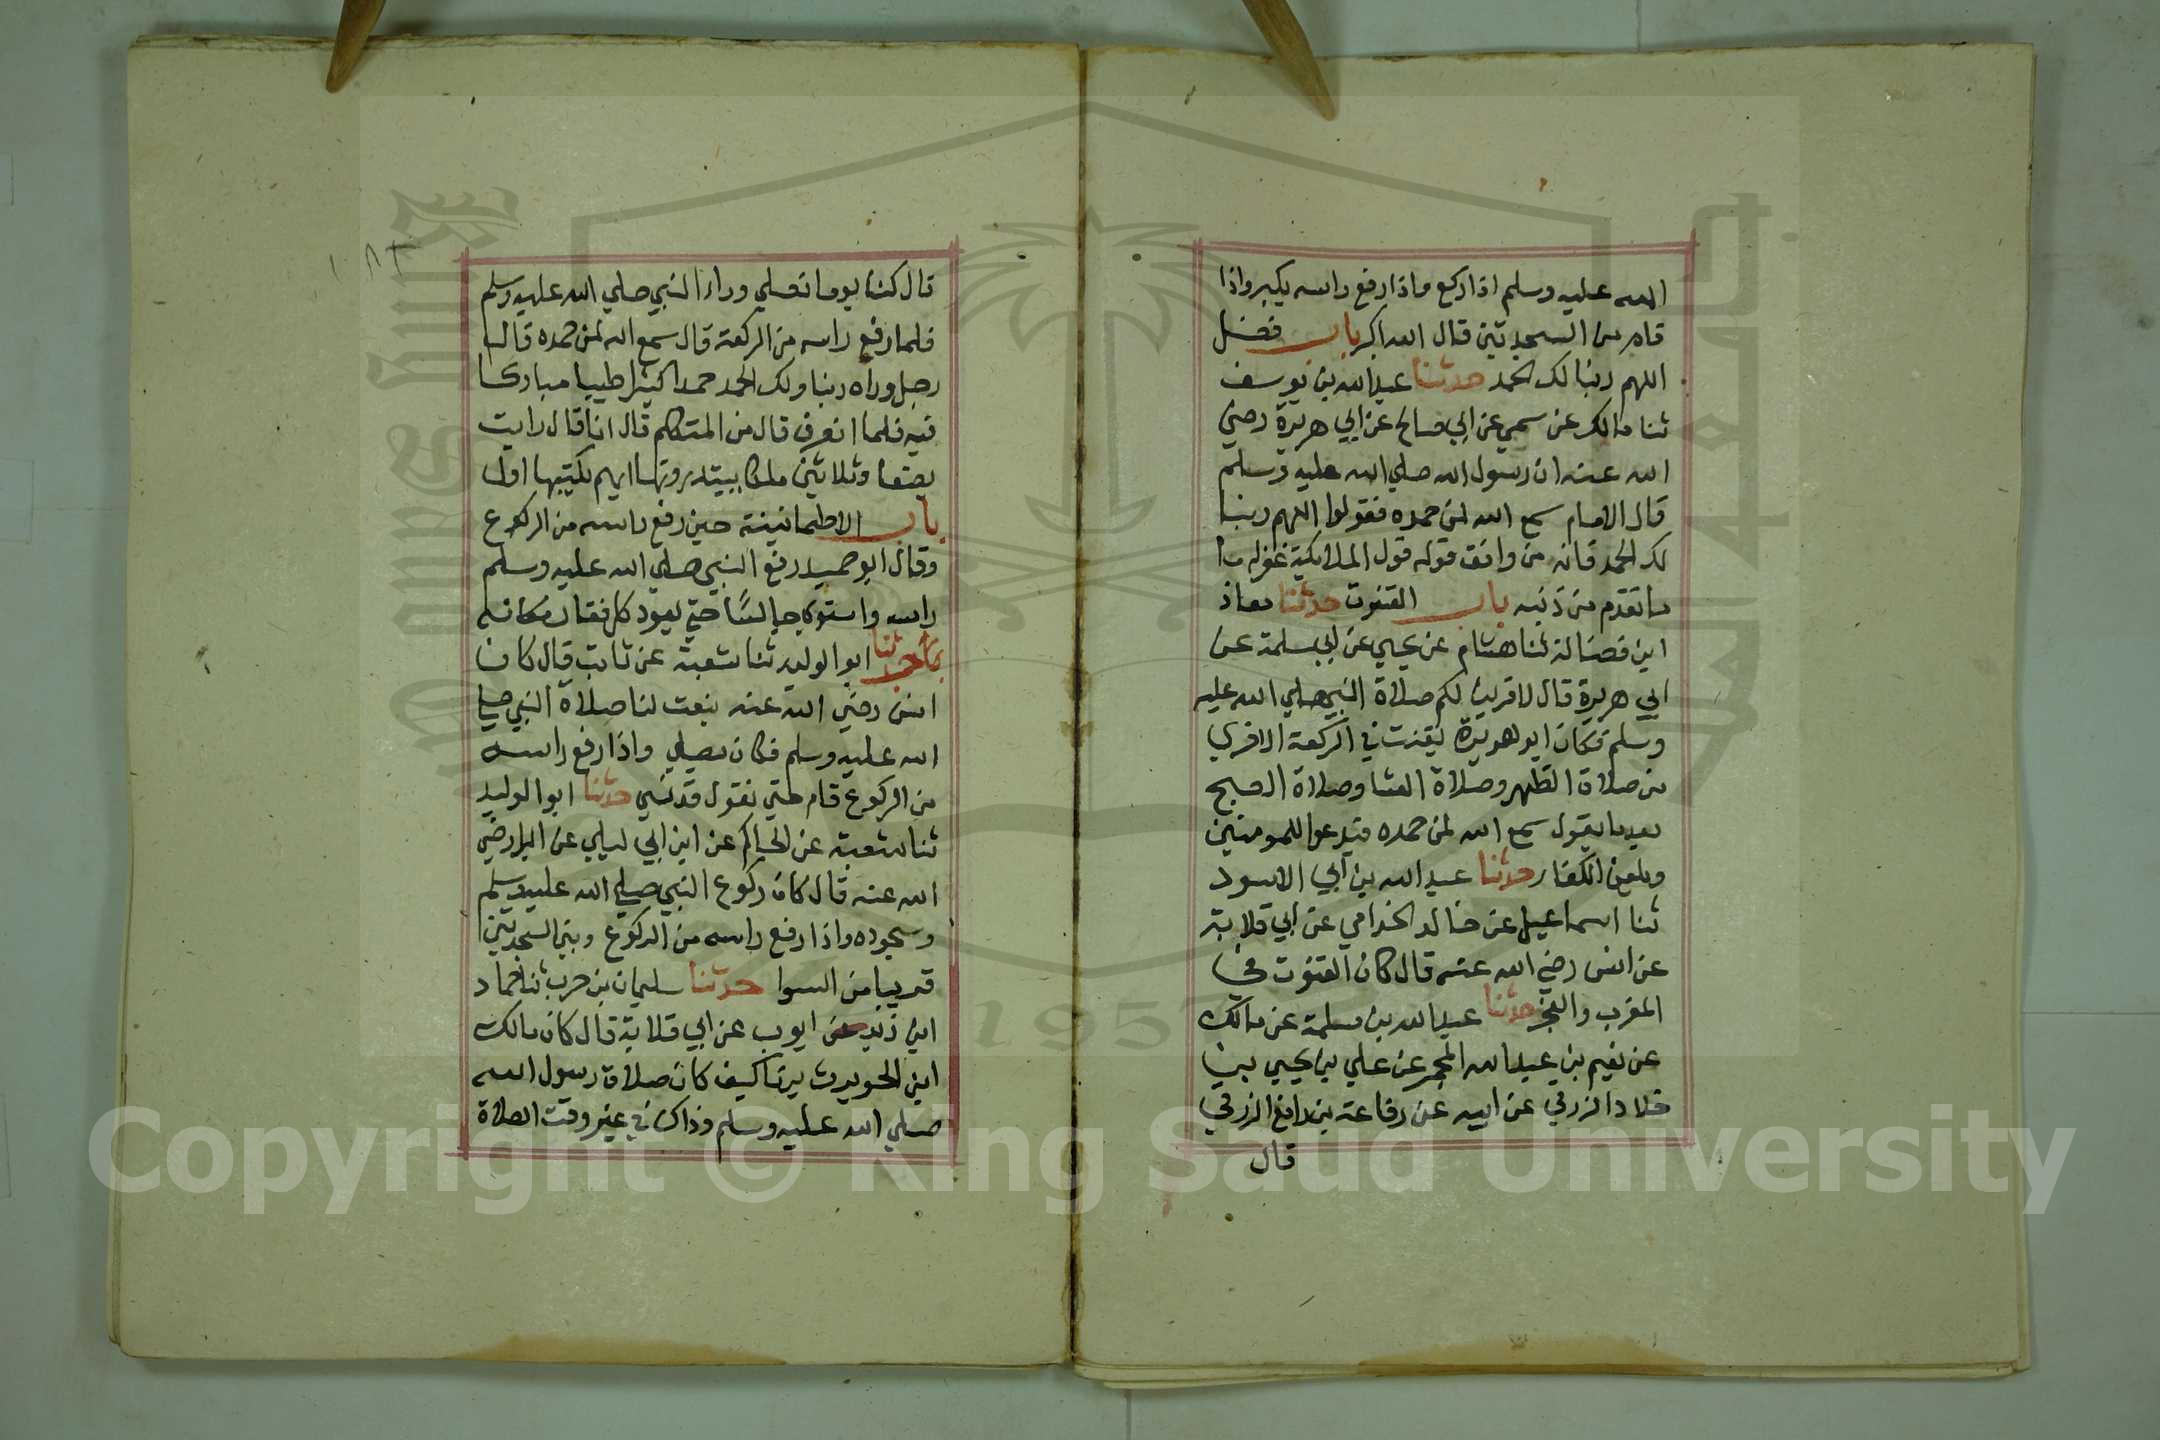 الله عليه وسلم اذا ركع واذا رفع راسه يكبر واذا
قام من السجدتين قال الله اكبر باب فضل
اللهم ربنا لك الحمد حدثنا عبد الله بن يوسف
ثنا مالك عن سمي عن ابي صالح عن ابي هريرة رضي
الله عنه ان رسول الله صلي الله عليه وسلم
قال الامام سمع الله لمن حمده فقولوا اللهم ربنا
لك الحمد فانه من وافق قوله قول الملائكية غفر له ما
ما تقدم من ذنبه باب القنوت حدثنا معاذ
ابن فضالة ثنا هشام عن يحيي عن ابي سلمة عن
ابي هريرة قال لا قربن لكم صلاة النبي صلي الله عليه
وسلم فكان ابو هريرة يقنت في الركعة الاخري
من صلاة الظهر وصلاة العشا وصلاة الصبح
بعد ما يقول سمع الله لمن حمده فيدعوا للمومنين
ويلعن الكفار حدثنا عبد الله بن ابي الاسود
ثنا اسماعيل عن خالد الخدامي عن ابي قلابة
عن انس رضي الله عنه قال كان القنوت في
المغرب والفجر حدثنا عبد الله بن مسلمة عن مالك
عن نعيم بن عبد الله المجمر عن علي بن يحيي بن
خلاد الزرقي عن ابيه عن رفاعة بن رافع الزرقي
قال
١٨٢
قال كنا يوما نصلي وراء النبي صلي الله عليه وسلم
فلما رفع راسه من الركعة قال سمع الله لمن حمده قال
رجل وراه ربنا ولك الحمد حمدا كثيرا طيبا مباركا
فيه فلما انصرف قال من المتكلم قال انا قال رايت
بضعا وثلاثين ملكا يبتدرونها ايهم يكتبها اول
باب الاطمانينة حين رفع راسه من الركوع
وقال ابو حميد رفع النبي صلي الله عليه وسلم
راسه واستوي جالسا حتي يعود كل فقار مكانه
حدثنا ابو الوليد ثنا شعبة عن ثابت قال كان
انس رضي الله عنه ينعت لنا صلاة النبي صلي
الله عليه وسلم فكان يصلي واذا رفع راسه
من الركوع قام حتي نقول قد نسي حدثنا ابو الوليد
ثنا شعبة عن الحاكم عن ابن ابي ليلي عن البرا رضي
الله عنه قال كان ركوع النبي صلي الله عليه وسلم
وسجوده واذا رفع راسه من الركوع وبين السجدتين
قريبا من السوا حدثنا سليمان بن حرب ثنا حماد
ابن زيد عن ايوب عن ابي قلابة قال كان مالك
ابن الحويرث يرنا كيف كان صلاة رسول الله
صلي الله عليه وسلم وذاك في غير وقت الصلاة
1957
Copyright © King Saud University